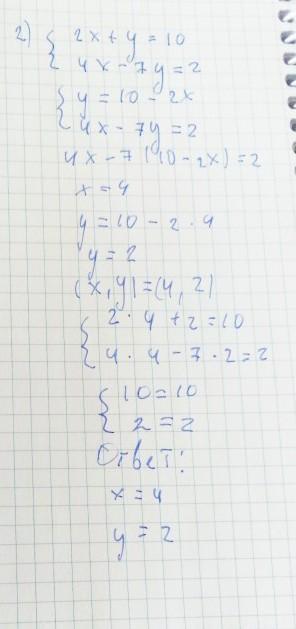 2) { 2x + y = 10
4x - 7y = 2
{ y = 10 - 2x
4x - 7y = 2
4x - 7(10 - 2x) = 2
x = 4
y = 10 - 2 · 4
y = 2
(x, y) = (4, 2)
{ 2 · 4 + 2 = 10
4 · 4 - 7 · 2 = 2
{ 10 = 10
2 = 2
Ответ:
x = 4
y = 2